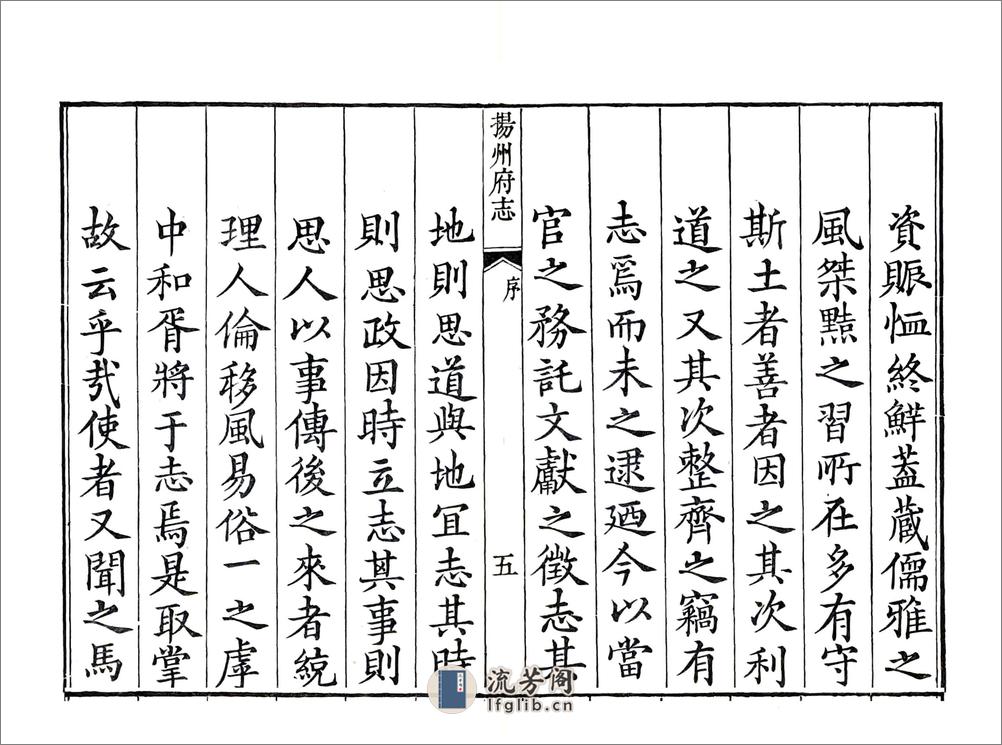 資賑恤終鮮葢藏儒雅之
風桀黠之習所在多有守
斯土者善者因之其次利
道之又其次整齊之竊有
志焉而未之逮廼今以當
官之務託文獻之徵志其
揚州府志
序
五
地則思道與地宜志其時
則思政因時立志其事則
思人以事傳後之來者統
理人倫移風易俗一之虖
中和胥將于志焉是取掌
故云乎哉使者又聞之馬
流芳阁
lfglib.cn